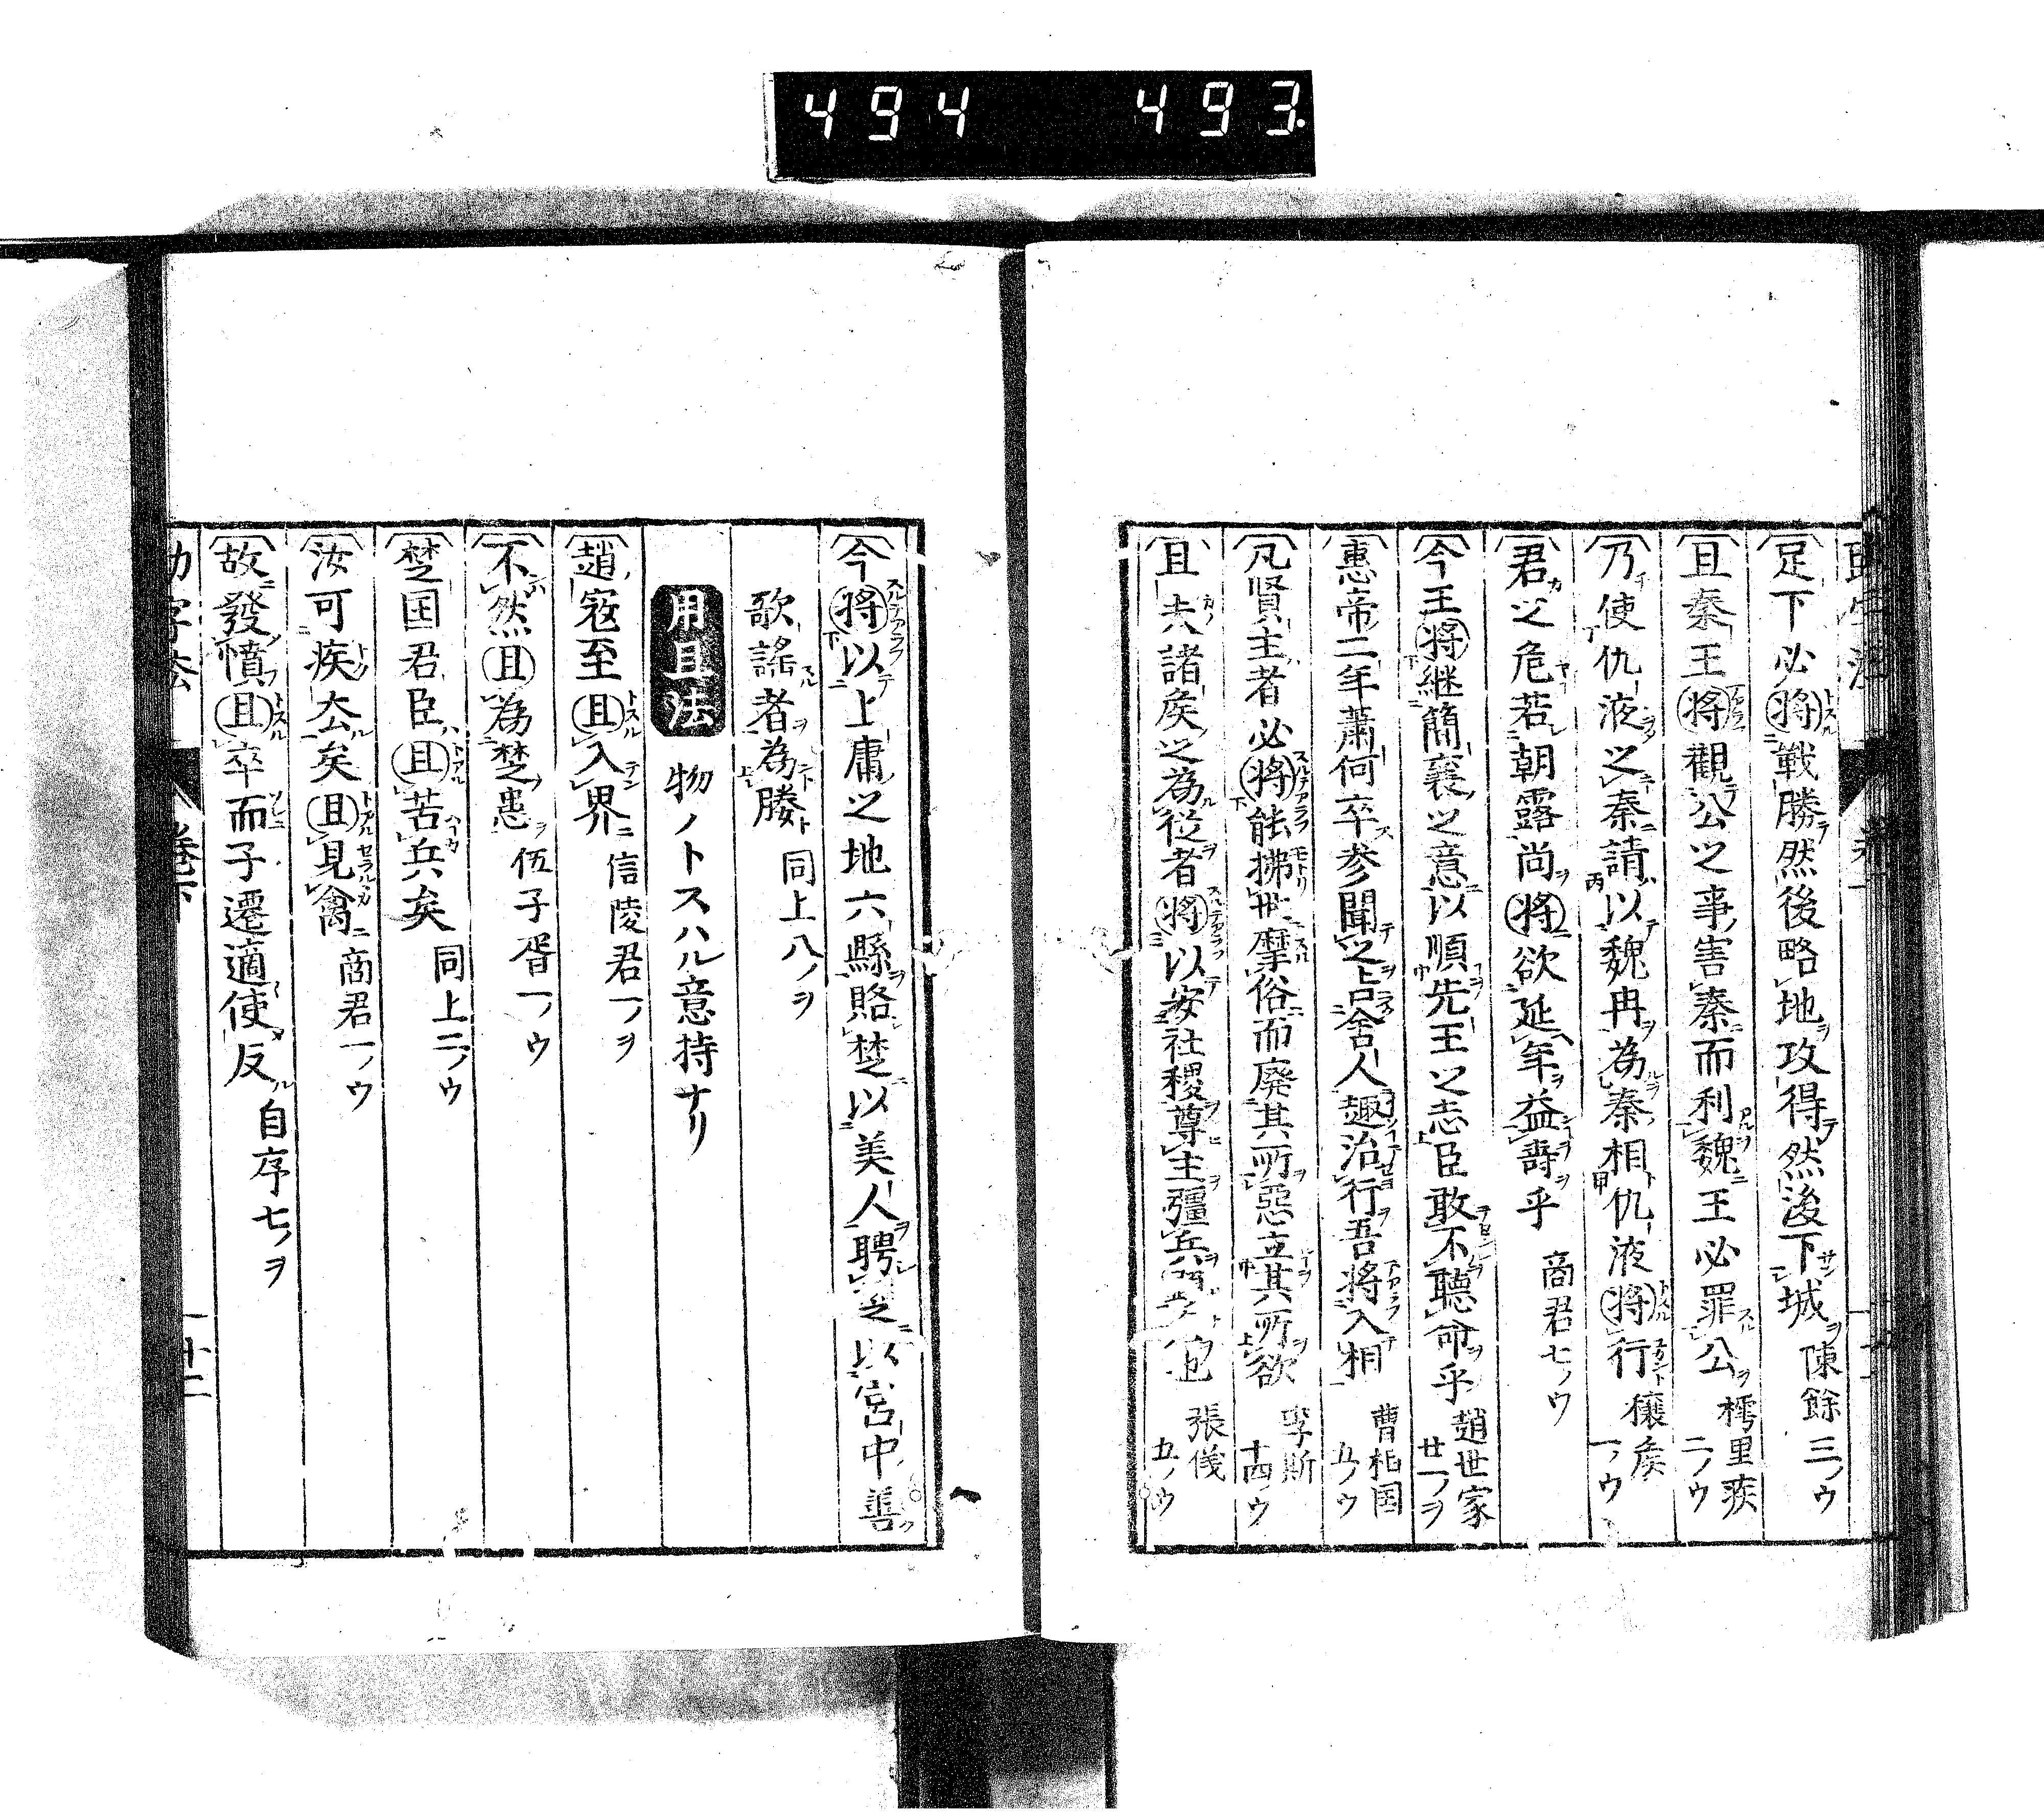 494 493
足下必將戰勝然後略地攻得然後下城 陳餘 三ノウ
且秦王將觀公之事害秦而利魏王必罪公 樗里疾 二ノウ
乃使仇液之秦請以魏冉為秦相仇液將行 穰矦 一ノウ
君之危若朝露尚將欲延年益壽乎 商君七ノウ
今王將継簡襄之意以順先王之志臣敢不聴命乎 趙世家 廿一ノヲ
惠帝二年蕭何卒参聞之告舍人趣治行吾將入相 曹相国 五ノウ
凡賢主者必將能拂世摩俗而廃其所惡立其所欲 李斯 十四ノウ
且夫諸矦之為従者將以安社稷尊主彊兵 張儀 五ノウ
今將以上庸之地六縣賂楚以美人聘楚以宮中善
歌謠者為媵 同上八ノヲ
用且法 物ノトスハル意持ナリ
趙寇至且入界 信陵君一ノヲ
不然且為楚患 伍子胥一ノウ
楚国君臣且苦兵矣 同上二ノウ
汝可疾去矣且見禽 商君一ノウ
故發憤且卒而子遷適使反 自序七ノヲ
卷下
廿二